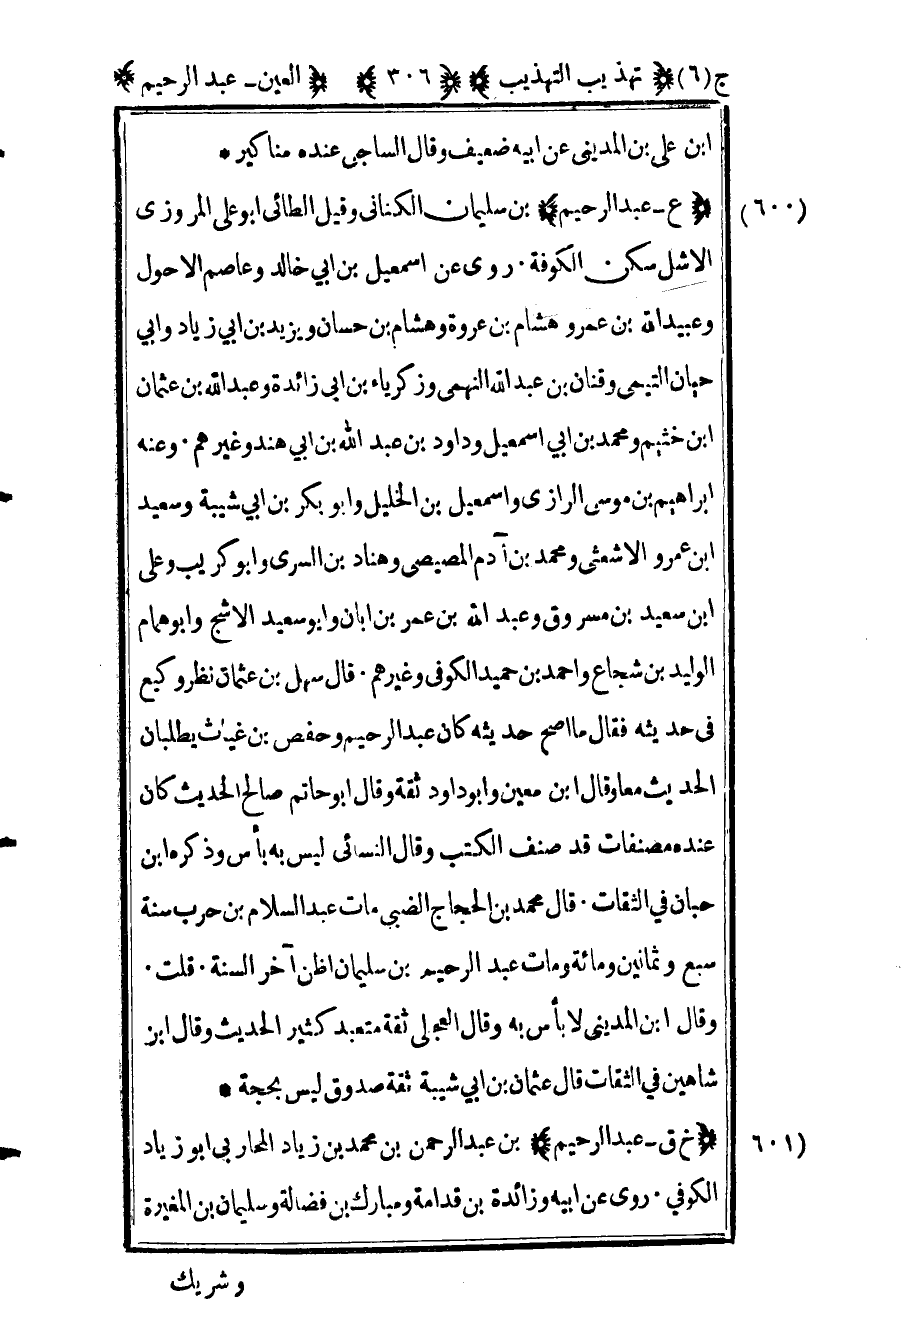 ج(٦) ﴿ تهذيب التهذيب ﴾ ﴿ ٣٠٦ ﴾ ﴿ العين ـ عبد الرحيم ﴾
ابن على بن المدينى عن ابيه ضعيف وقال الساجى عنده مناكير *
(٦٠٠) ﴿ ع ـ عبد الرحيم ﴾ بن سليمان الكنانى وقيل الطائى ابو على المروزى
الاشل سكن الكوفة · روى عن اسمعيل بن ابي خالد وعاصم الاحول
وعبيد الله بن عمرو هشام بن عروة وهشام بن حسان ويزيد بن ابي زياد وابي
حيان التيمى وقنان بن عبد الله النهمى وزكرياء بن ابى زائدة وعبد الله بن عثمان
ابن خثيم ومحمد بن ابي اسمعيل وداود بن عبد الله بن ابي هند وغيرهم · وعنه
ابراهيم بن موسى الرازى واسمعيل بن الخليل وابو بكر بن ابي شيبة وسعيد
ابن عمرو الاشعثى ومحمد بن آدم المصيصى وهناد بن السرى وابو كريب وعلى
ابن سعيد بن مسروق وعبد الله بن عمر بن ابان وابو سعيد الاشج وابو همام
الوليد بن شجاع واحمد بن حميد الكوفى وغيرهم · قال سهل بن عثمان نظر وكيع
فى حديثه فقال ما اصح حديثه كان عبد الرحيم وحفص بن غياث يطلبان
الحديث معا وقال ابن معين وابو داود ثقة وقال ابو حاتم صالح الحديث كان
عنده مصنفات قد صنف الكتب وقال النسائى ليس به بأس وذكره ابن
حبان في الثقات · قال محمد بن الحجاج الضبي مات عبد السلام بن حرب سنة
سبع وثمانين ومائة ومات عبد الرحيم بن سليمان اظن آخر السنة · قلت ·
وقال ابن المدينى لا بأس به وقال العجلى ثقة متعبد كثير الحديث وقال ابن
شاهين في الثقات قال عثمان بن ابي شيبة ثقة صدوق ليس بحجة *
(٦٠١) ﴿ خ ق ـ عبد الرحيم ﴾ بن عبد الرحمن بن محمد بن زياد المحاربى ابو زياد
الكوفي · روى عن ابيه وزائدة بن قدامة ومبارك بن فضالة وسليمان بن المغيرة
وشريك